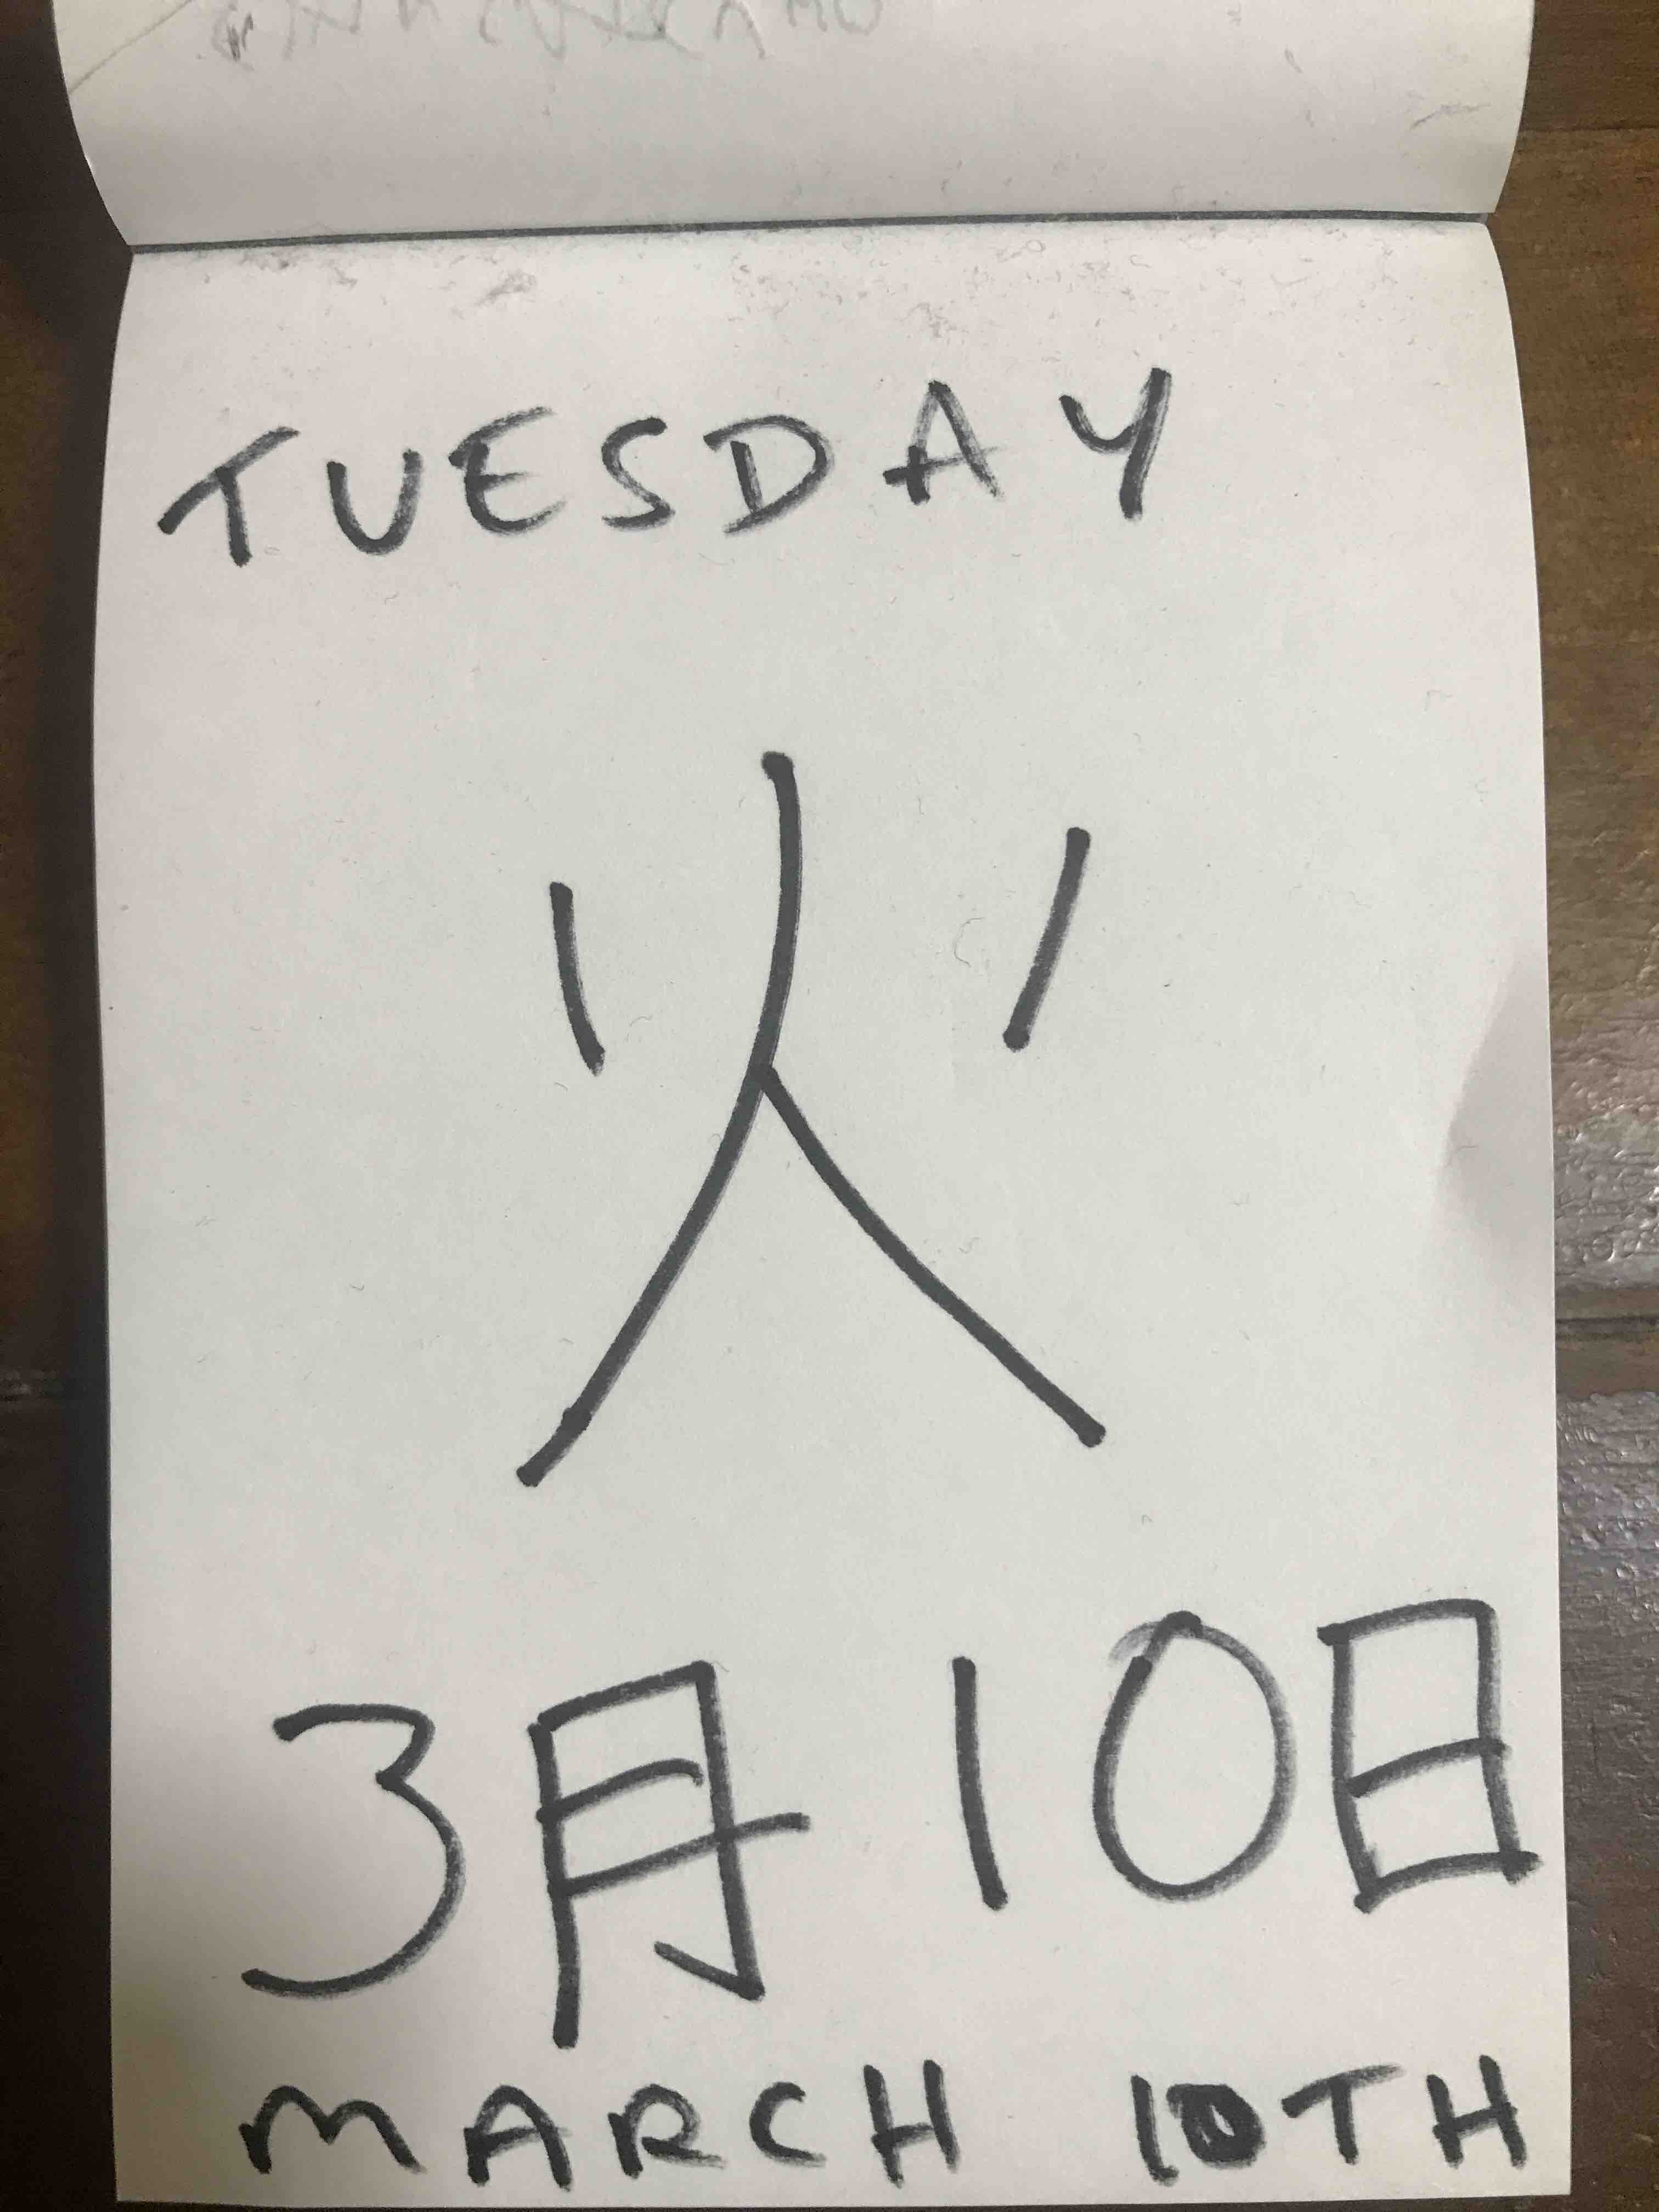 TUESDAY
火
3月10日
MARCH 10TH